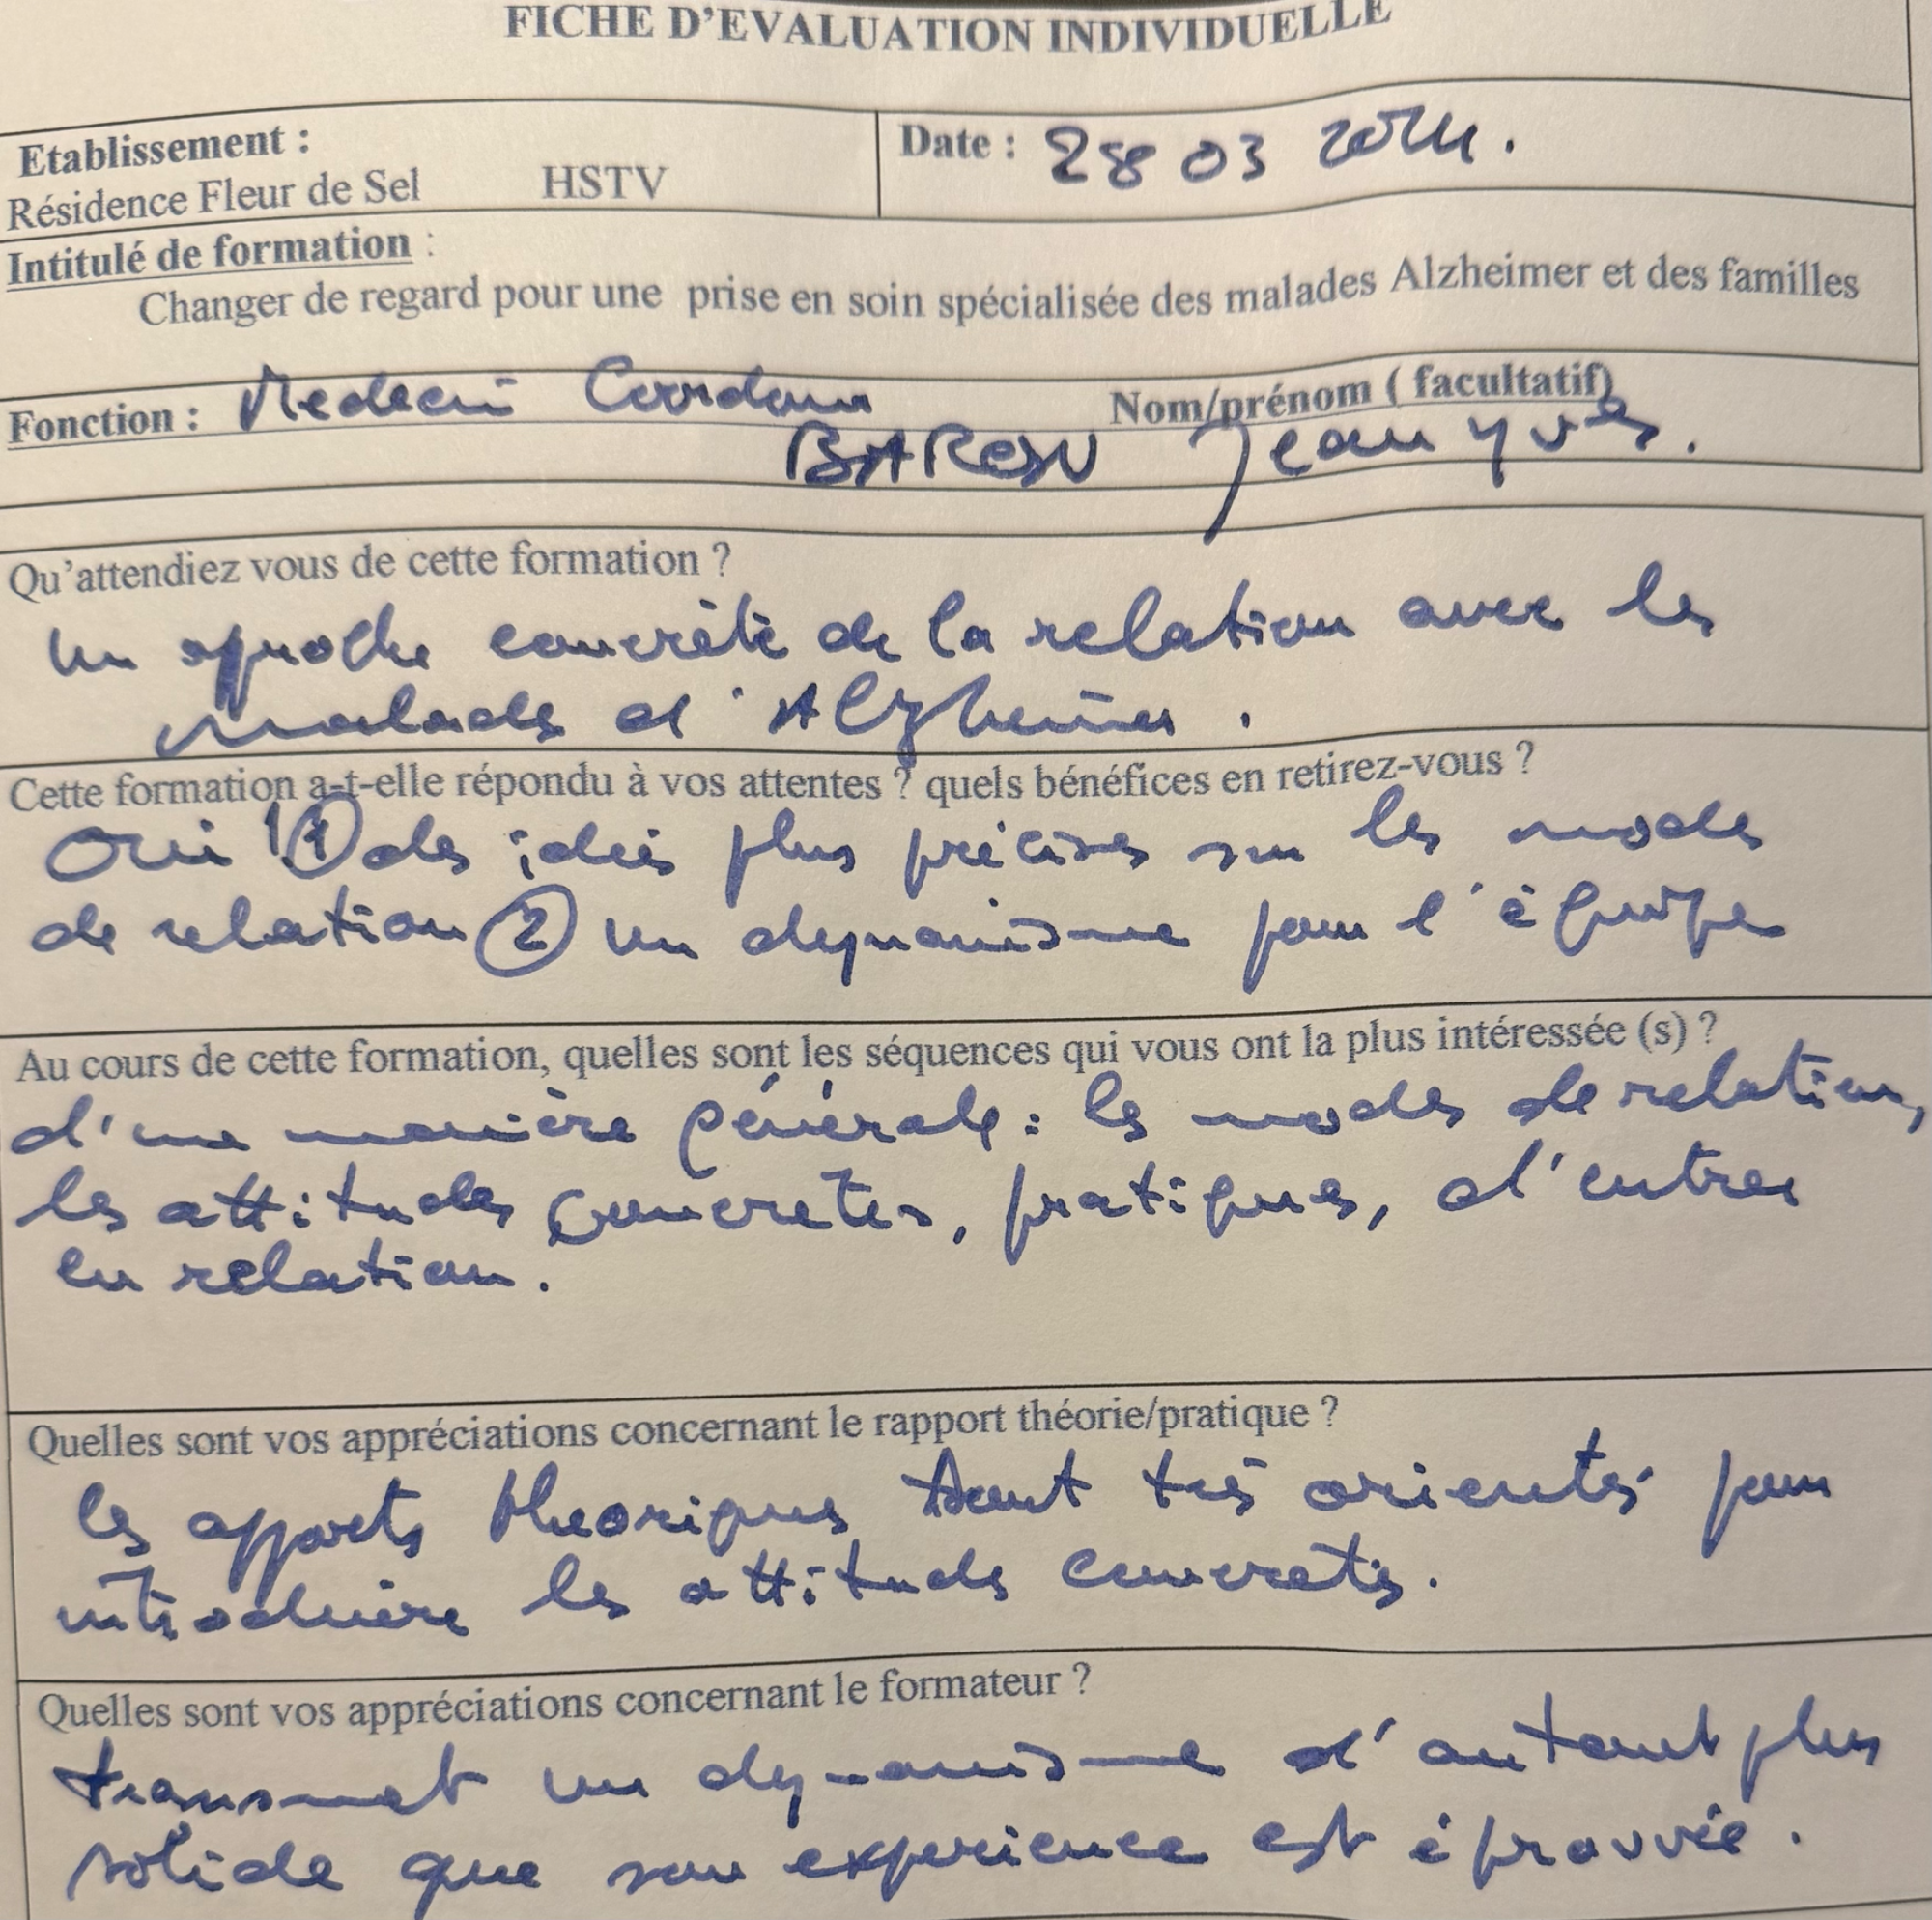 FICHE D'EVALUATION INDIVIDUELLE
Etablissement :
Résidence Fleur de Sel HSTV
Date : 28 03
Intitulé de formation :
Changer de regard pour une prise en soin spécialisée des malades Alzheimer et des familles
Fonction : Medecin
Nom/prénom ( facultatif)
Jean yves.
Qu'attendiez vous de cette formation ?
un approche concrète de la relation avec les
malades d'Alzheimer.
Cette formation a-t-elle répondu à vos attentes ? quels bénéfices en retirez-vous ?
Oui ! ① des idées plus précises sur les modes
de relation ② un dynamisme pour l'équipe
Au cours de cette formation, quelles sont les séquences qui vous ont la plus intéressée (s) ?
d'une manière générale : les modes de relation,
les attitudes concretes, pratiques, d'entrer
en relation.
Quelles sont vos appréciations concernant le rapport théorie/pratique ?
les apports theoriques sont très orientés pour
introduire les attitudes concretes.
Quelles sont vos appréciations concernant le formateur ?
transmet un dynamisme d'autant plus
solide que son experience est éprouvée.